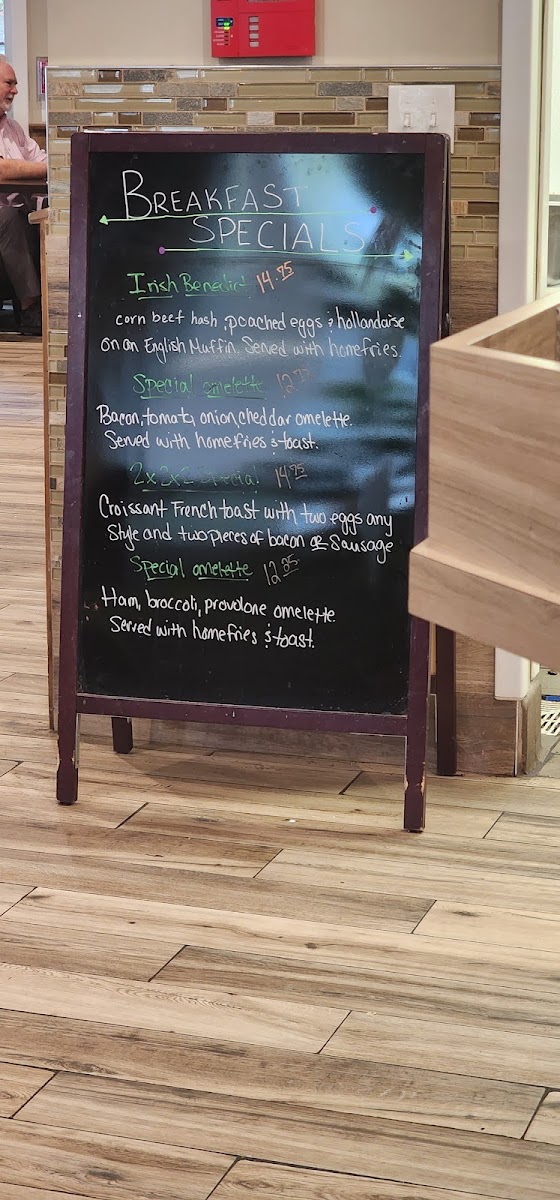 BREAKFAST
SPECIALS
Irish Benedict 14.75
corn beef hash, poached eggs & hollandaise
on an English Muffin. Served with homefries.
Special omelette 12.75
Bacon, tomato, onion, cheddar omelette.
Served with homefries & toast.
2x2x2 Special 14.95
Croissant French toast with two eggs any
Style and two pieces of bacon or Sausage
Special omelette 12.95
Ham, broccoli, provolone omelette.
Served with homefries & toast.